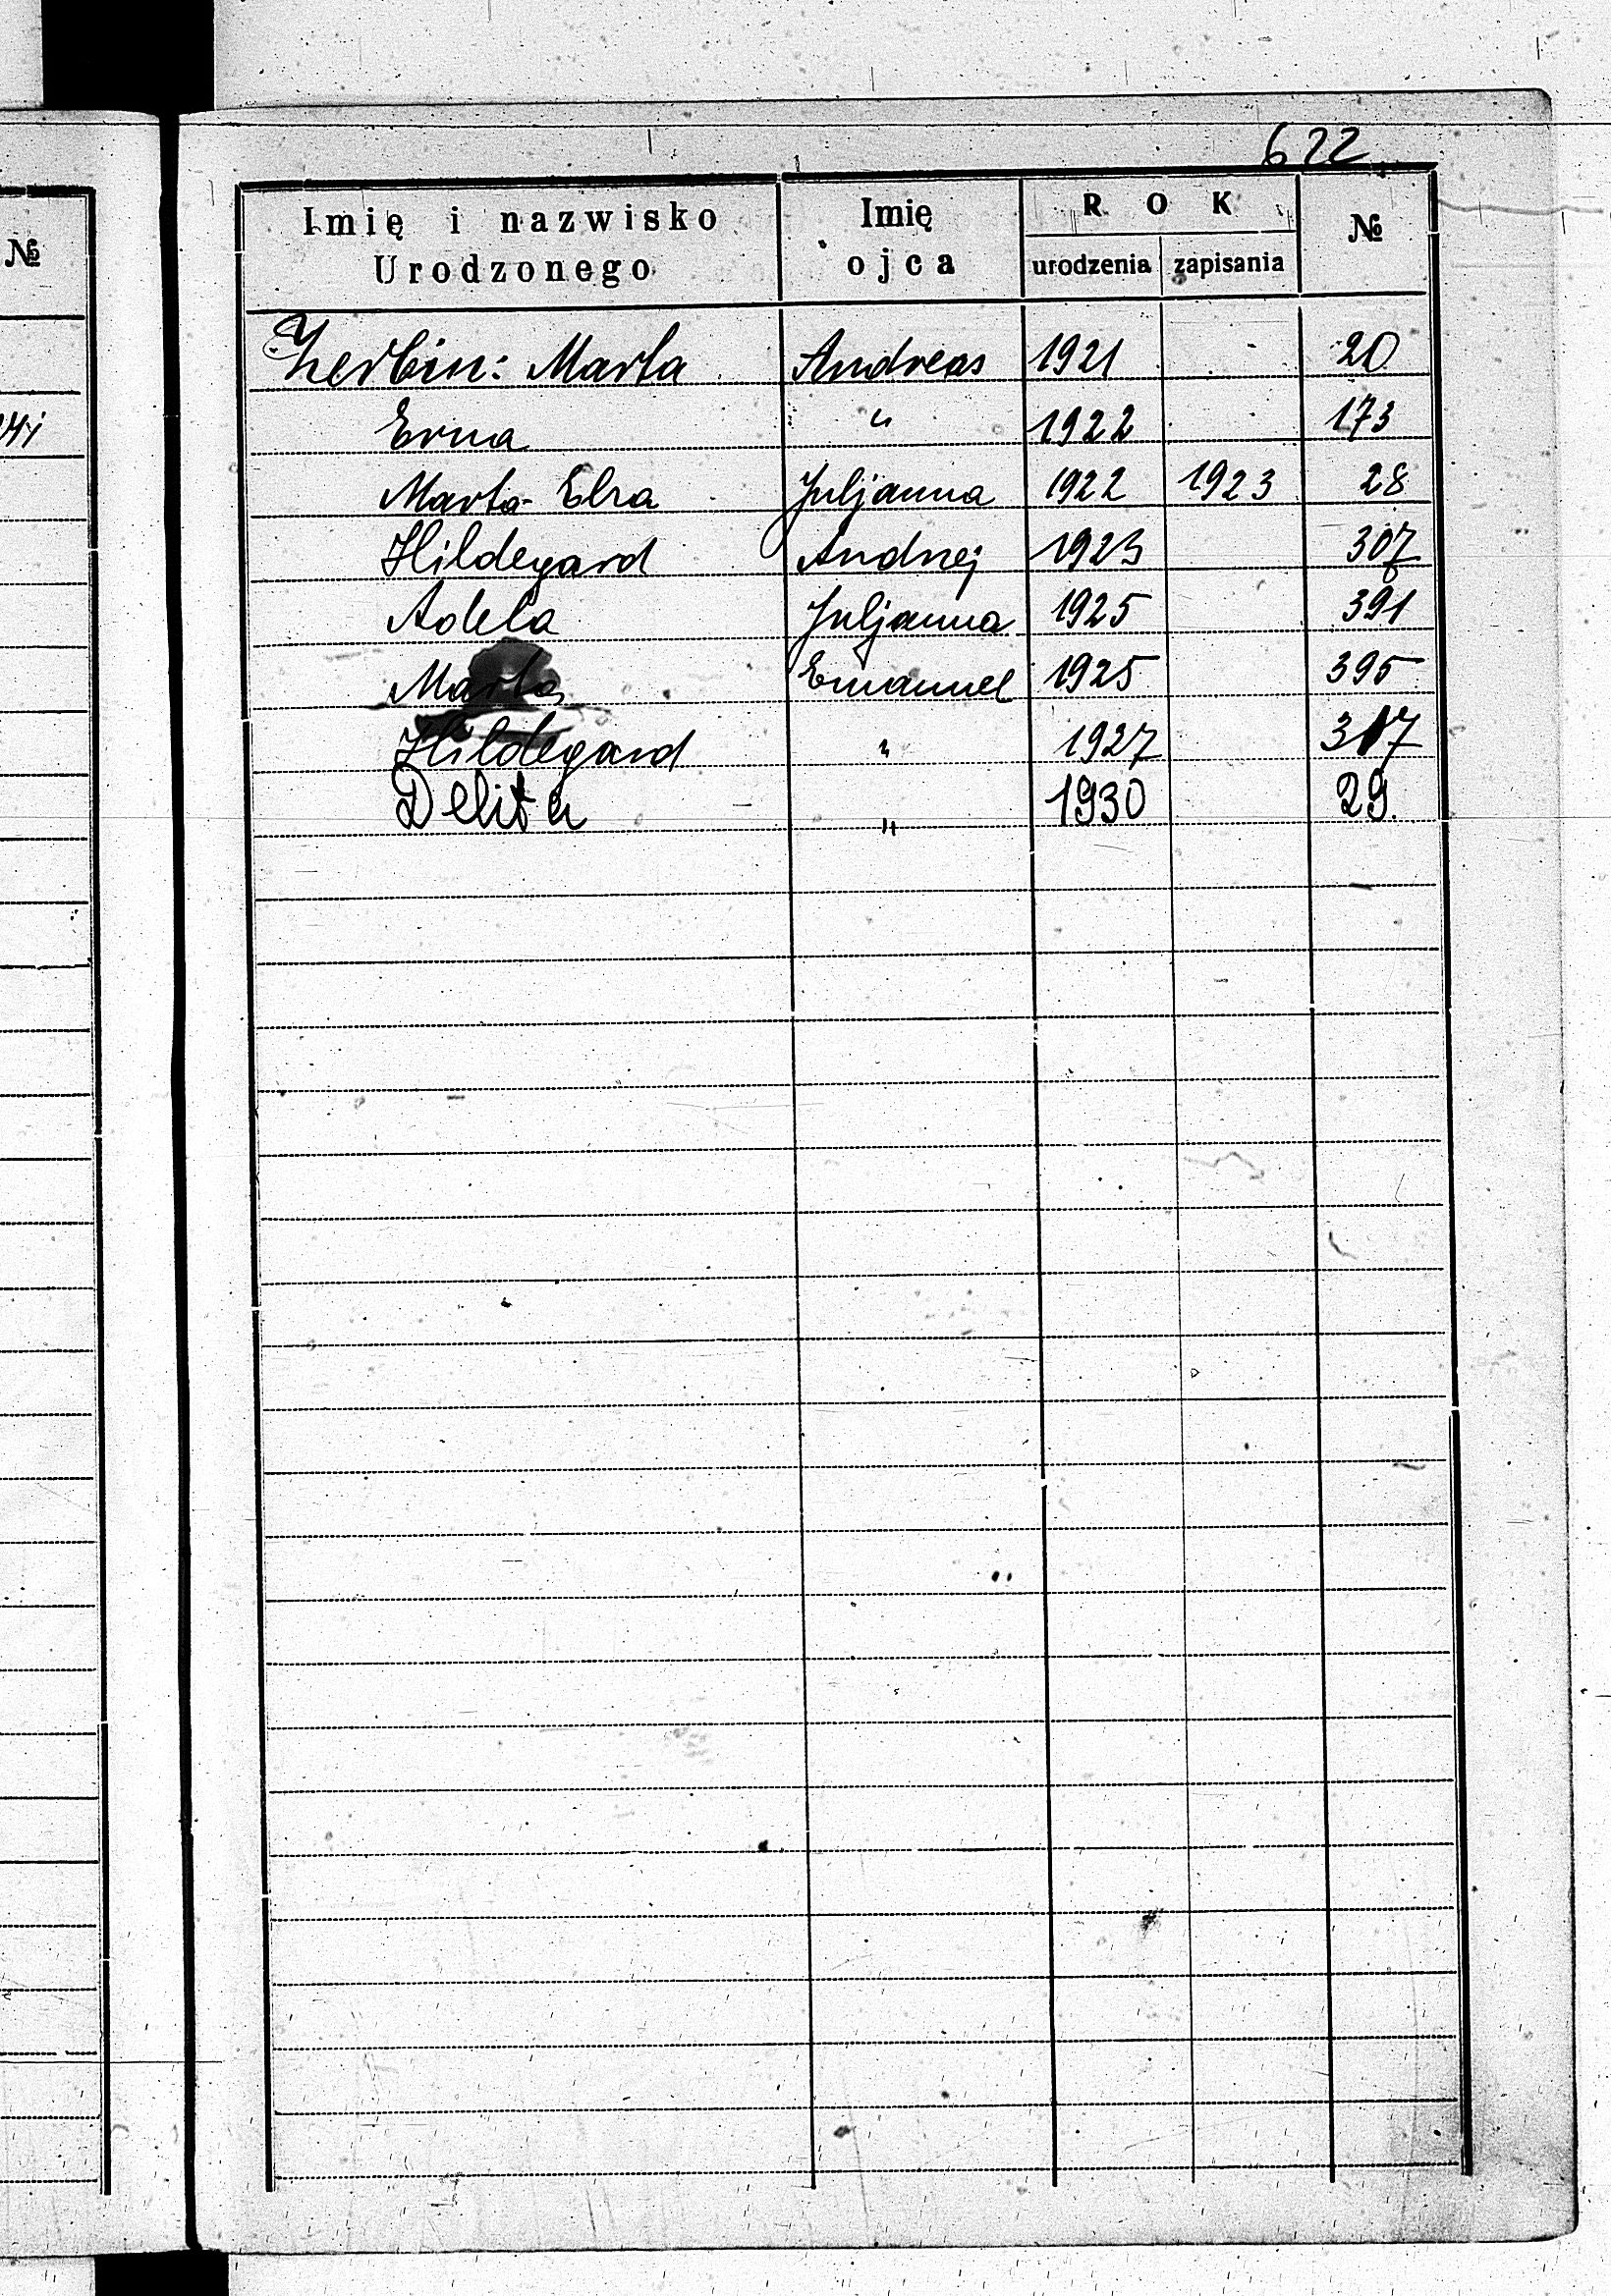 622
№
Imię i nazwisko Urodzonego Imię ojca ROK urodzenia zapisania №
Zerbin: Marta Andreas 1921 20
Erna " 1922 173
Marta Elza Juljanna 1922 1923 28
Hildegard Andrzej 1923 307
Adela Juljanna 1925 391
Marta Emanuel 1925 395
Hildegard " 1927 317
" 1930 29.